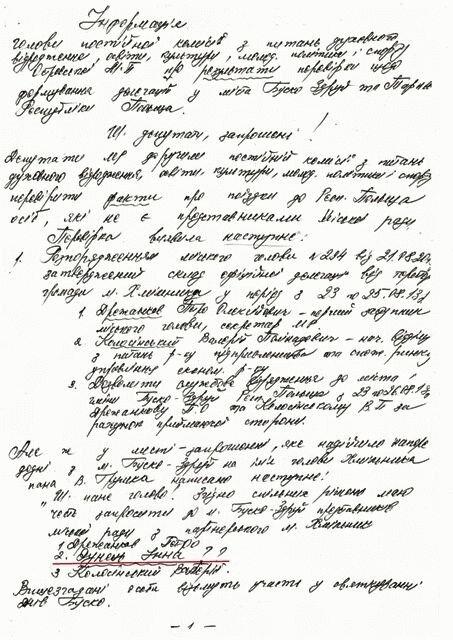 Інформація
голови постійної комісії з питань духовного
відродження, освіти, культури, молод. політики і спорту
про результати перевірки щодо
формування делегацій у міста Буско-Здруй та
Республіки Польща.
Ш. депутати, запрошені!
Депутати доручили постійній комісії з питань
духовного відродження, освіти, культури, молод. політики і спорту
перевірити факти про поїздки до Респ. Польща
осіб, які не є представниками міської ради
Перевірка виявила наступне:
1. Розпорядженням міського голови №284 від 21.08.
затверджений склад офіційної делегації від
громади м. Хмільника у період з 23 по 25.08.13р
1. Дрежанков – перший заступник
міського голови, секретар МР.
2. Колосінський Валерій – нач. відділу
з питань р-ку підприємництва та ринку
управління економ. р-ку
3. Дозволити службове відрядження до міста
Буско-Здруй Респ. Польща з 23 по 26.08.13р
Дрежанкову та Колосінському В. П за
рахунок приймаючої сторони.
Але ж у листі-запрошенні, яке надійшло
з м. Буско-Здруй на ім'я голови Хмільника
пана В. написано наступне:
"Ш. пане голово! Згідно рішень маю
честь запросити до м. Буско-Здруй представників
міської ради з партнерського м. Хмільник
1. Дрежанков
2. Інна ??
3 Колосінський Валерій.
Вищезгадані особи візьмуть участь у святкуванні
днів Буско.
– 1 –